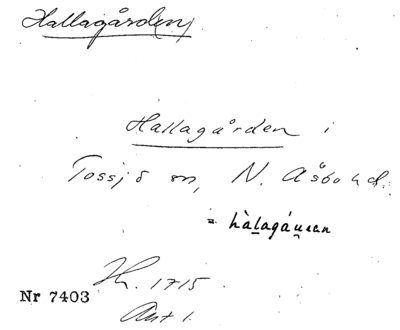 Hallagården
Hallagården i
Tossjö sn, N. Åsbo hd.
= hàlagáu̯ɛan
H. 1715
Nr 7403
Art 1.